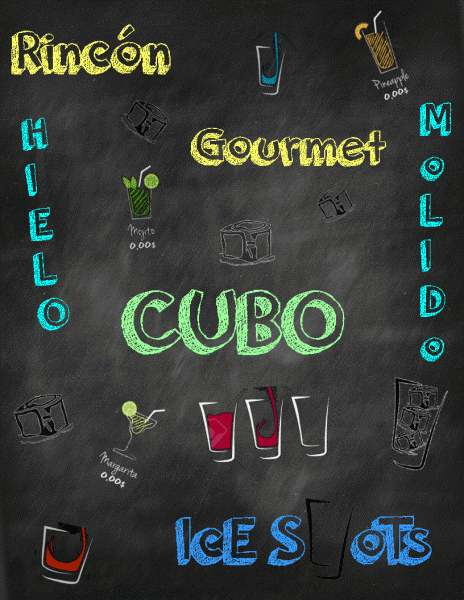 Rincón
Pineapple
0,00$
Gourmet
HIELO
MoLIDo
Mojito
0,00$
CUBO
Margarita
0,00$
IcE S oTs